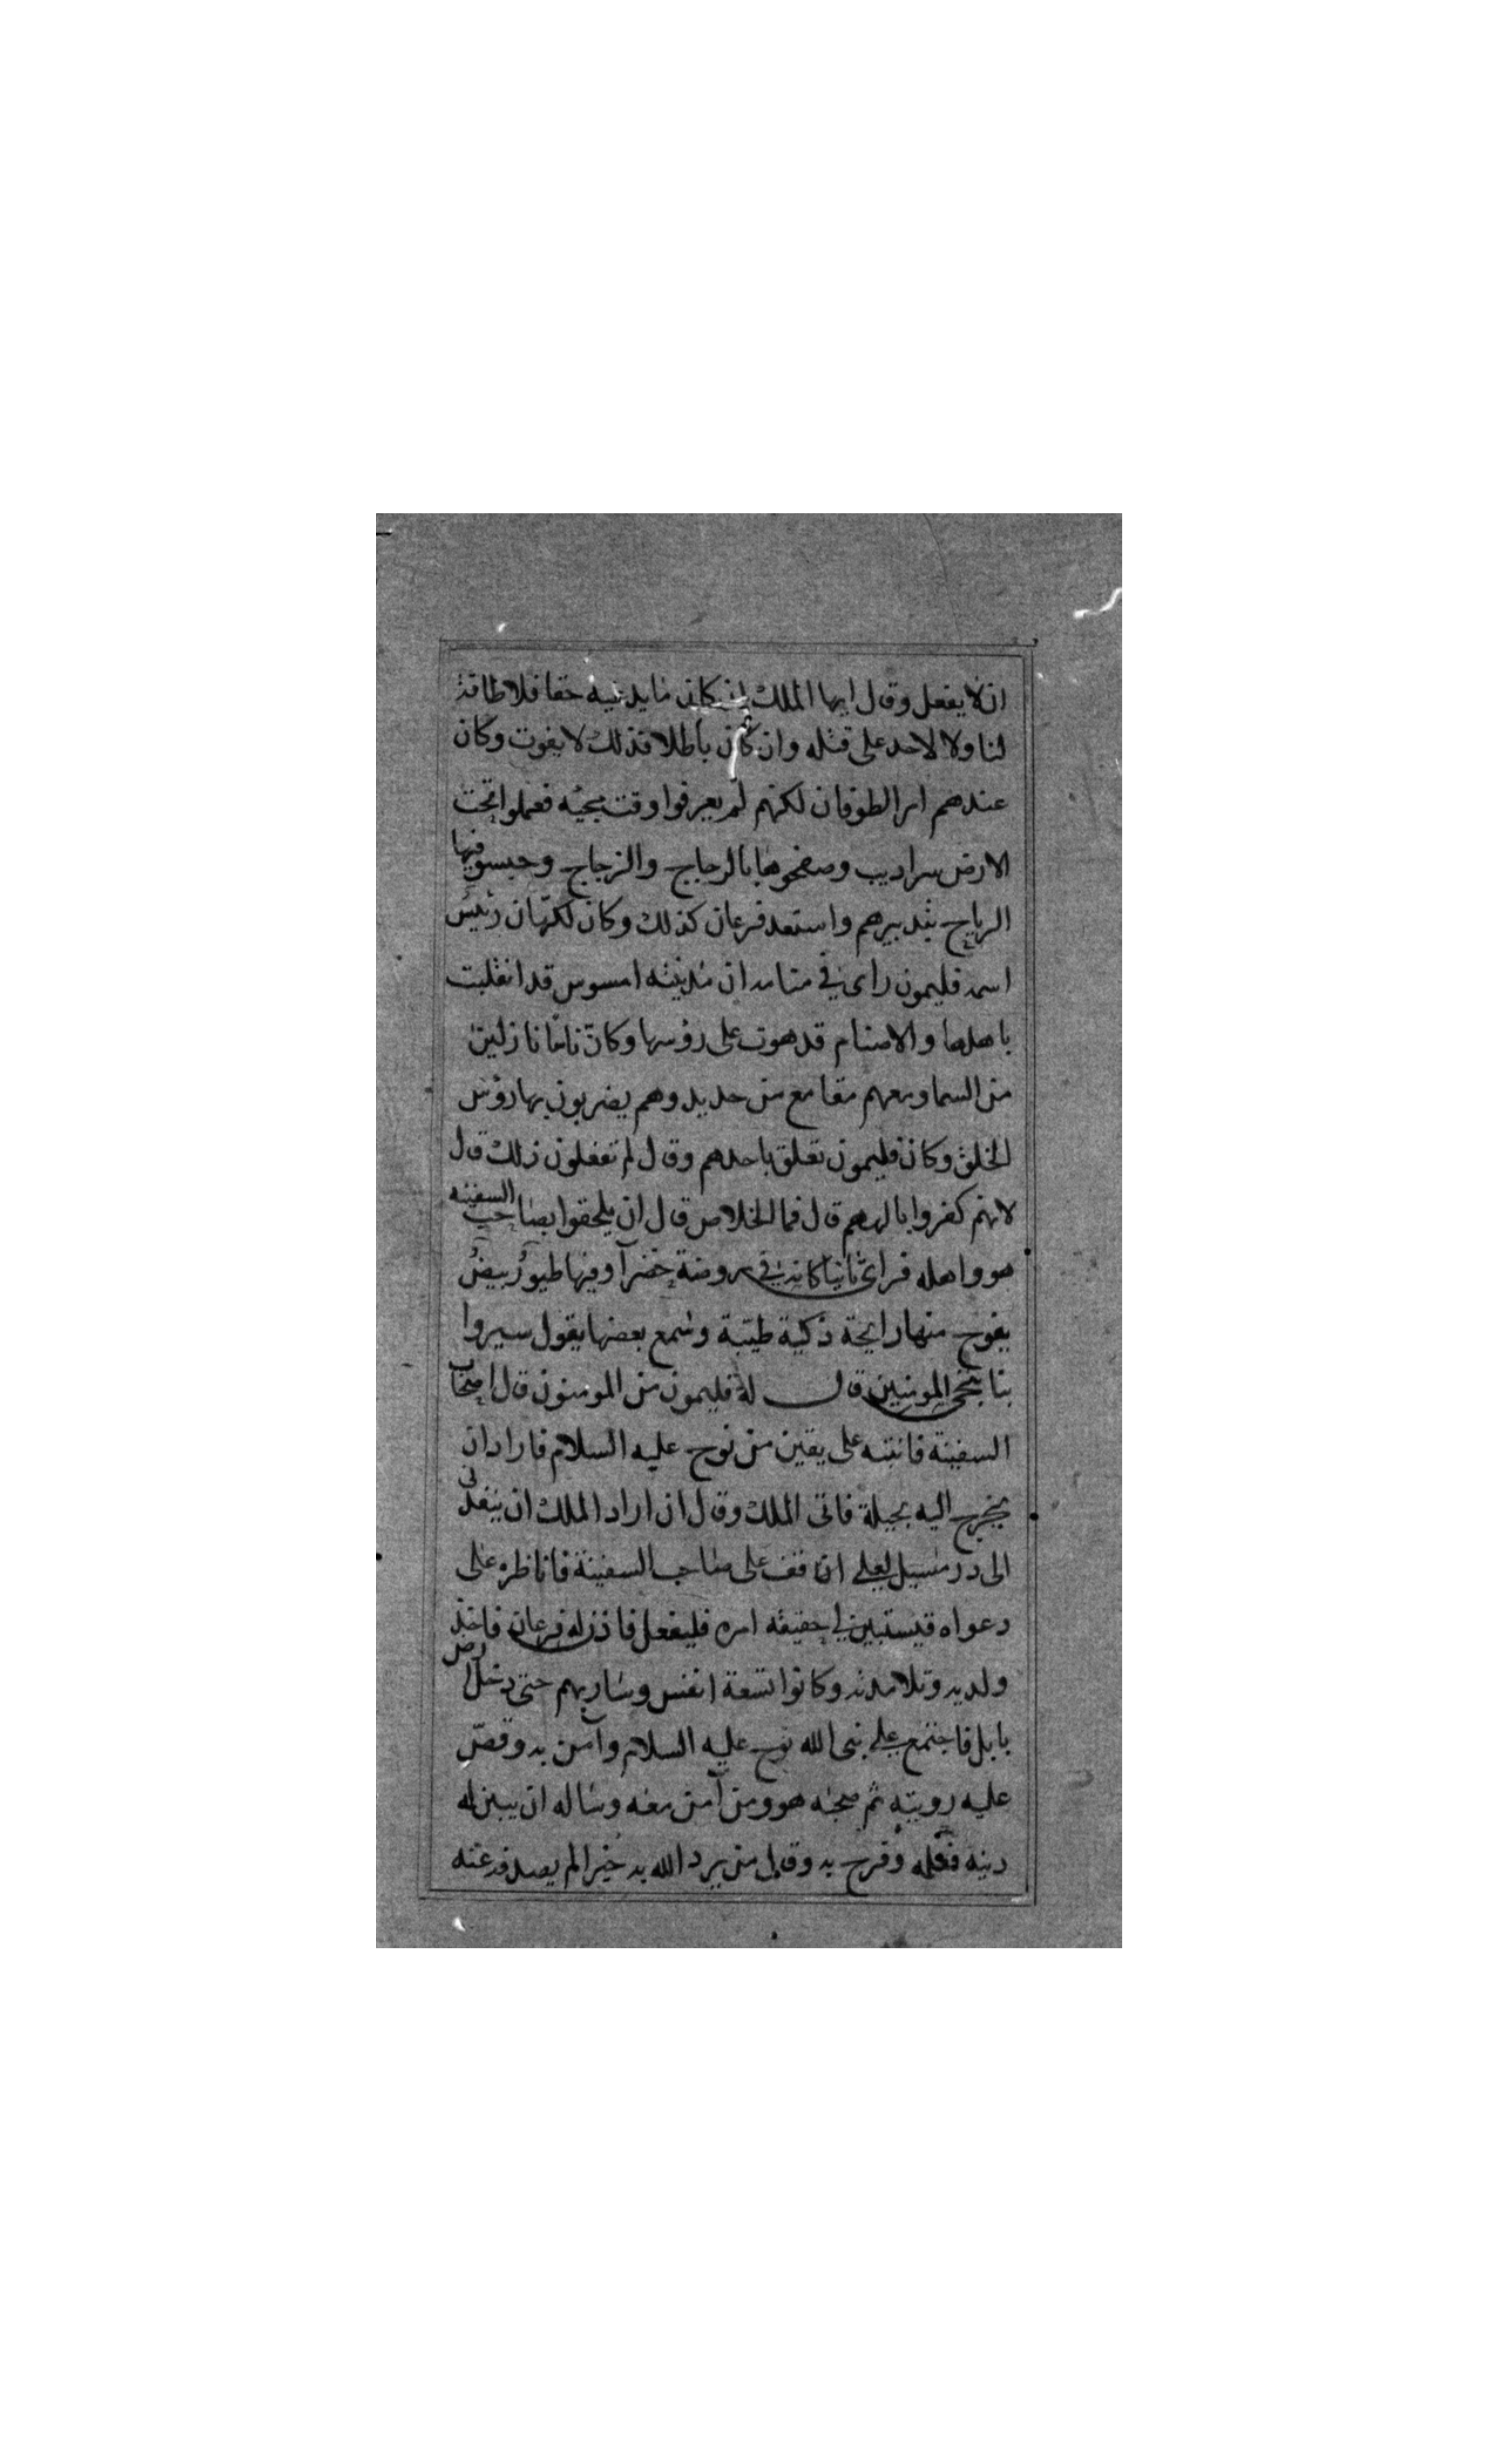 ان لا يفعل وقال ايها الملك ان كان ما يدعيه حقا فلا طاقة
لنا ولا لاحد على قتله وان كان باطلا فذلك لا يفوت وكان
عندهم امر الطوفان لكنهم لم يعرفوا وقت مجيئه فعملوا تحت
الارض سراديب وصفحوها بالرجاج والزجاج وحبسو فيها
الرياح بتدبيرهم واستعد فرعان كذلك وكان لكهّان رئيس
اسمه فليمون راى في منامه ان مدينة امسوس قد انقلبت
باهلها والاصنام قد هوت على رؤسها وكان ناسا نازلين
من السما ومعهم مقامع من حديد وهم يضربون بها رؤس
الخلق وكان فليمون تعلق باحدهم وقال لم تفعلون ذلك قال
لانهم كفروا بالههم قال فما الخلاص قال ان يلحقوا بصاحب السفينه
هو واهله فراى ثانيا كانه في روضة خضرآ وفيها طيور بيض
يفوح منها رايحة ذكية طيبة وسمع بعضها يقول سيروا
بنا ننجي المومنين قال له فليمون من المومنون قال اصحاب
السفينة فانتبه على يقين من نوح عليه السلام فاراد ان
يخرج اليه بحيلة فاتى الملك وقال ان اراد الملك ان ينفذني
الى درمسيل لعلي ان اقف على صاحب السفينة فاناظره على
دعواه فيستبين لي حقيقة امره فليفعل فاذن له فرعان فاخذ
ولديه وتلامذته وكانوا تسعة انفس وسار بهم حتى دخل ارض
بابل فاجتمع على نبي الله نوح عليه السلام وآمن به وقصّ
عليه رويته ثم صحبه هو ومن آمن معه وساله ان يبين له
دينه فعلمه وفرح به وقال من يرد الله به خيرا لم يصده عنه